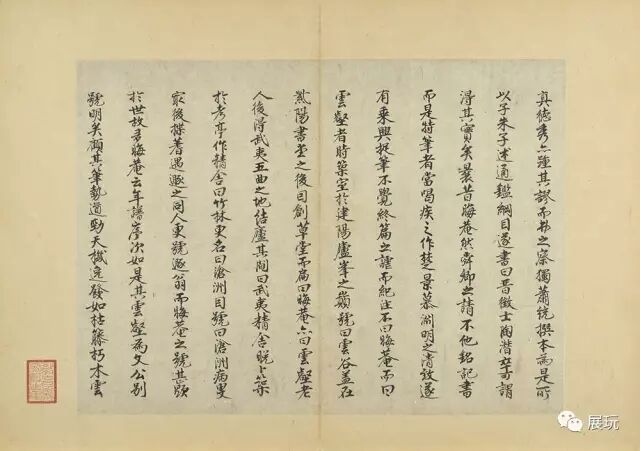 真德秀亦踵其謬而弗之察獨蕭統撰本為是所
以子朱子述通鑑綱目遂書曰晉徵士陶潛卒可謂
得其實矣曩昔晦菴然舜卿之請不他銘記書
而是特筆者當喝疾之作楚景慕淵明之清致遂
有乘興捉筆不覺終篇之謹而紀注不曰晦菴而曰
雲壑者時築室於建陽廬峯之巔號曰雲谷蓋在
熟陽書堂之後曰創草堂而扁曰晦菴亦曰雲壑老
人後得武夷五曲之地結廬其間曰武夷精舍晚卜築
於考亭作精舍曰竹林更名曰滄洲因號曰滄洲病叟
最後楪蓍遇遯之同人更號遯翁而晦菴之號甚顯
於世故君晦菴云年譜序次如是其雲壑為文公別
號明矣顧其筆勢遒勁天機逸發如枯藤朽木雲
展玩